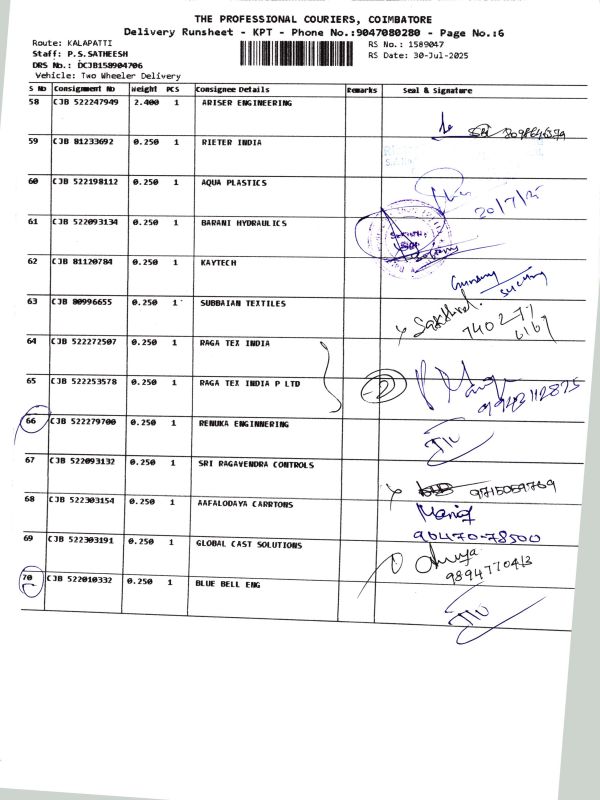 THE PROFESSIONAL COURIERS, COIMBATORE
Delivery Runsheet - KPT - Phone No.:9047080280 - Page No.:6
Route: KALAPATTI RS No.: 1589047
Staff: P.S.SATHEESH RS Date: 30-Jul-2025
DRS No.: DCJB158904706
Vehicle: Two Wheeler Delivery
S No Consignment No Weight PCS Consignee Details Remarks Seal & Signature
58 CJB 522247949 2.400 1 ARISER ENGINEERING
59 CJB 81233692 0.250 1 RIETER INDIA
60 CJB 522198112 0.250 1 AQUA PLASTICS
20/7/25
61 CJB 522093134 0.250 1 BARANI HYDRAULICS
62 CJB 81120784 0.250 1 KAYTECH
63 CJB 80996655 0.250 1 SUBBAIAN TEXTILES
Sakthivel.
740277
6167
64 CJB 522272507 0.250 1 RAGA TEX INDIA
65 CJB 522253578 0.250 1 RAGA TEX INDIA P LTD
-2
9943112875
66 CJB 522279700 0.250 1 RENUKA ENGINNERING
67 CJB 522093132 0.250 1 SRI RAGAVENDRA CONTROLS
9715059769
68 CJB 522303154 0.250 1 AAFALODAYA CARRTONS
Manoj
90470-78500
69 CJB 522303191 0.250 1 GLOBAL CAST SOLUTIONS
9894770413
70 CJB 522010332 0.250 1 BLUE BELL ENG